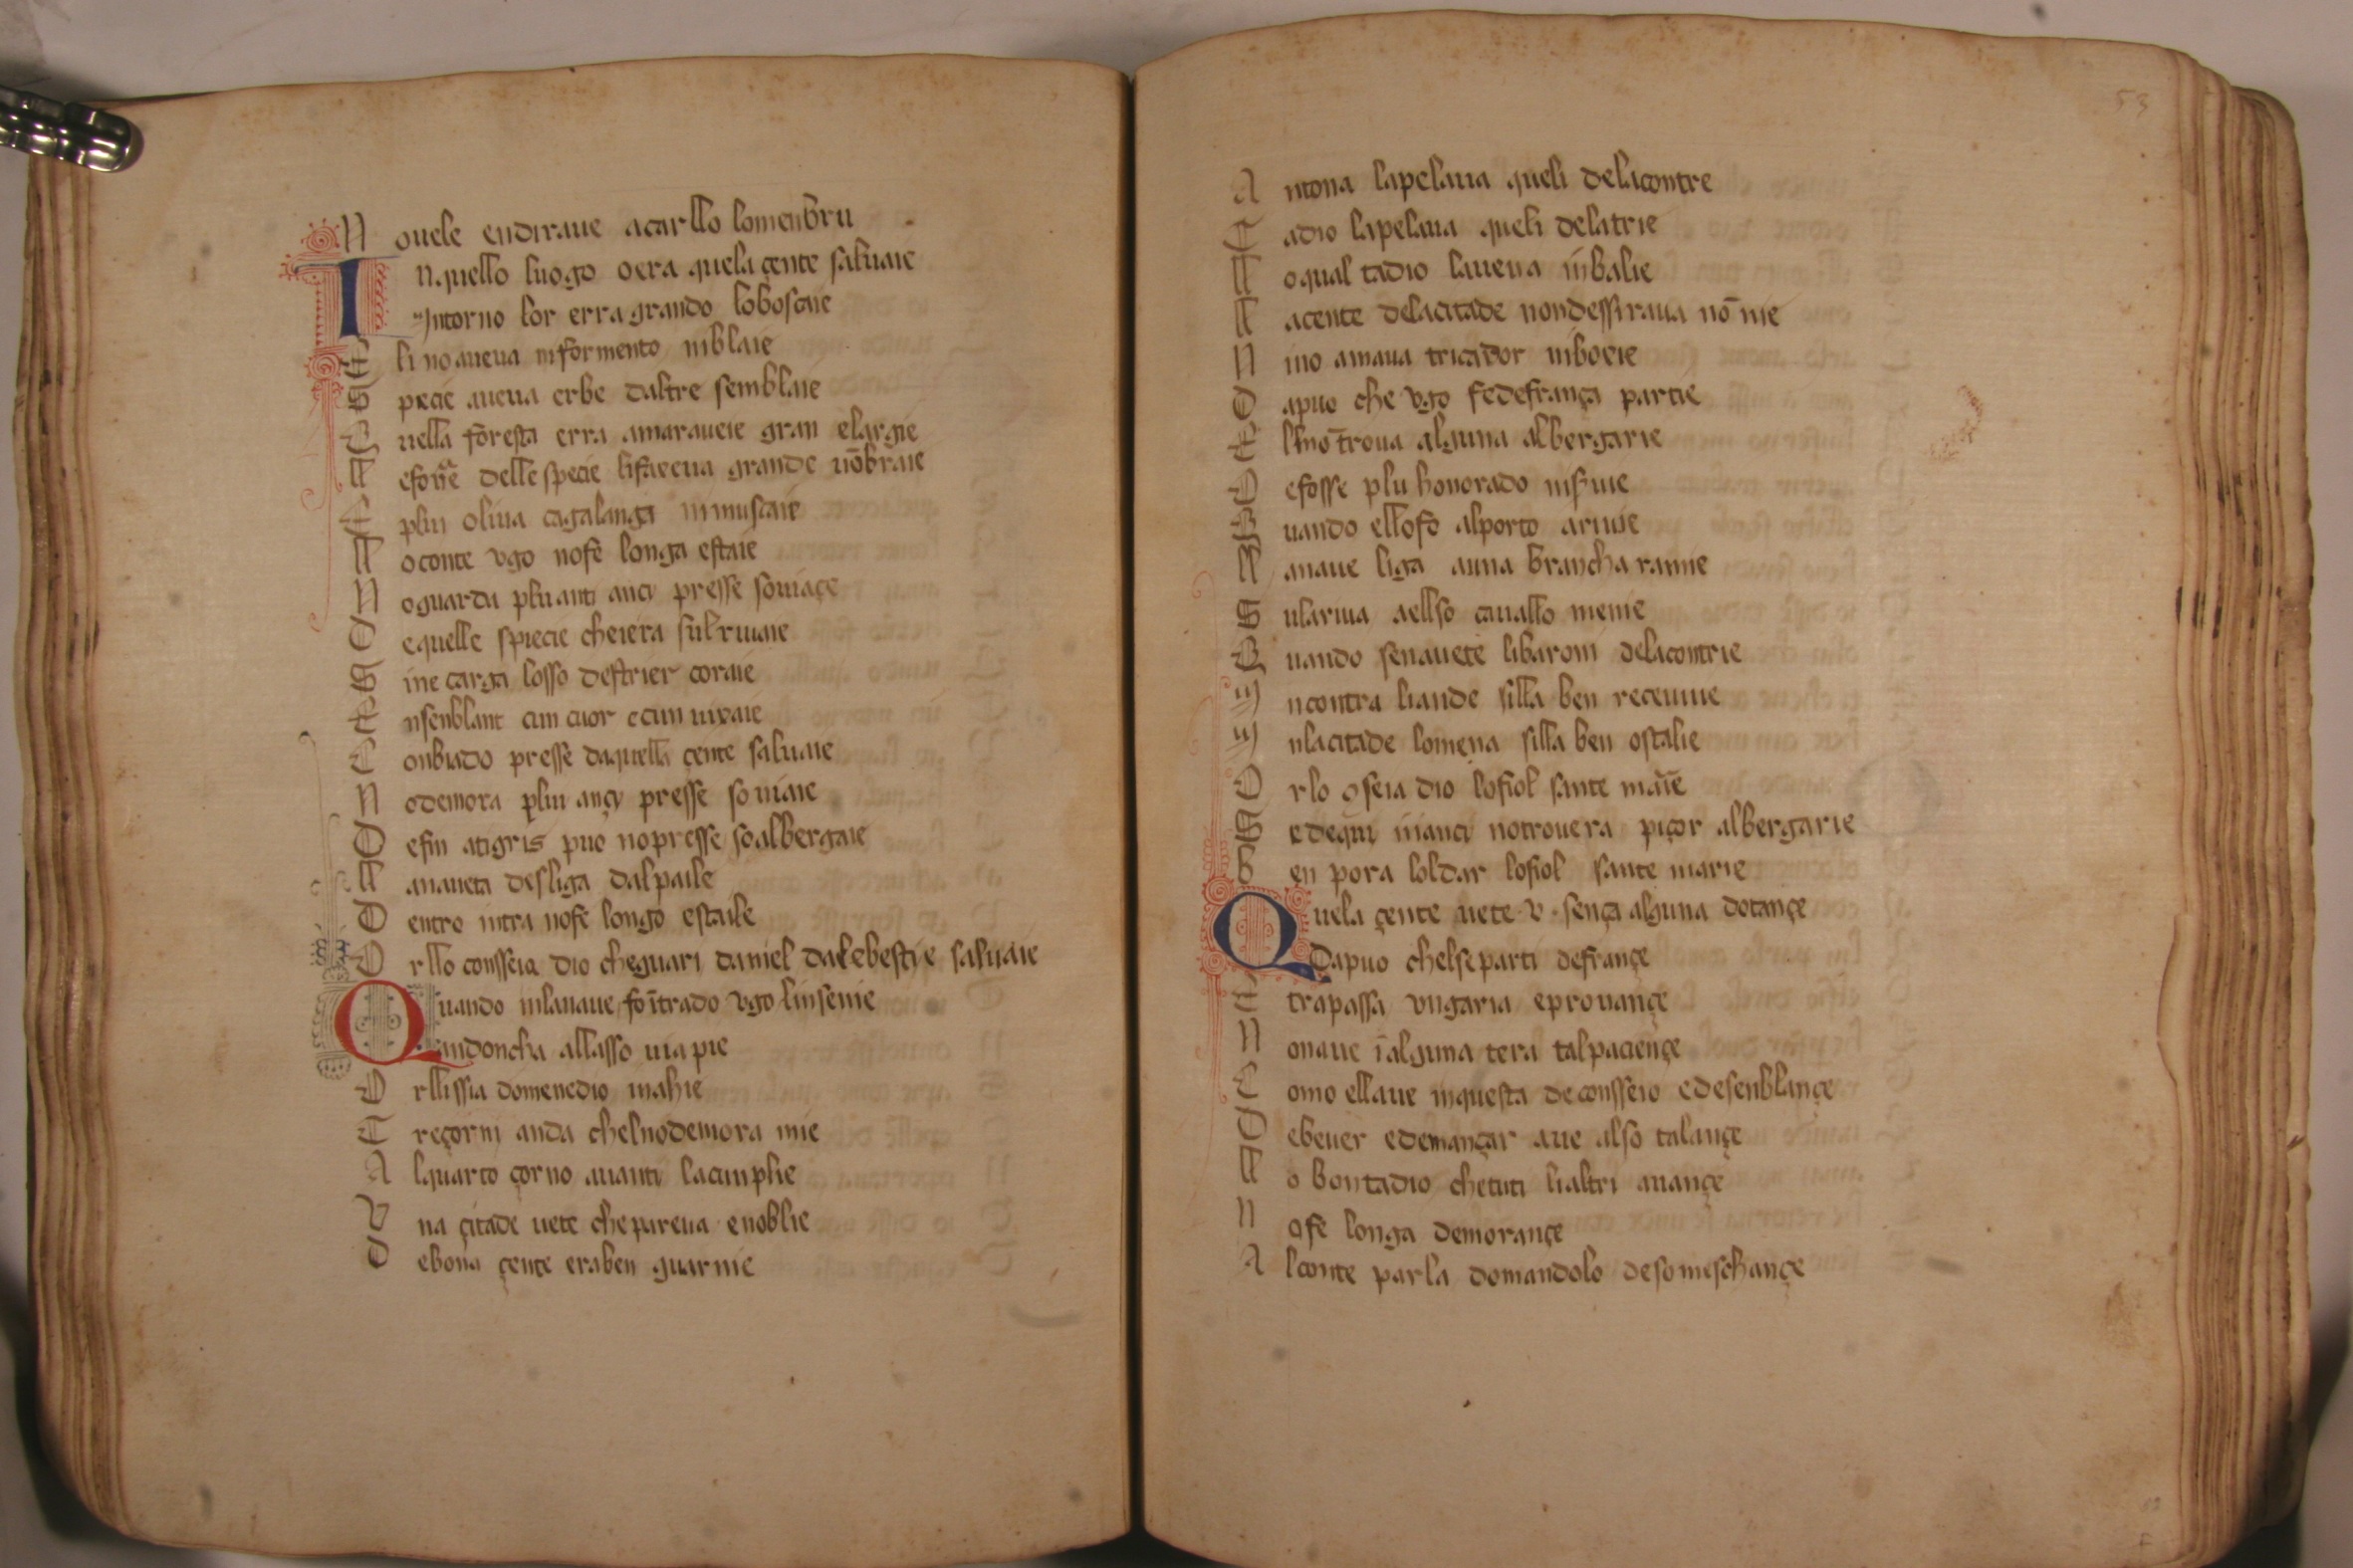 N ouele endiraue acarllo lomenbru
I nquello luogo oera quela çente saluaie
Intorno lor erra grando loboscaie
E li no aueua nformento niblaie
S pecie aueua erbe daltre semblaie
Q uella foresta erra amaraueie gran elargie
ll efoie delle specie lifaceua grande unbraie
E plui oliua cagalanga ninuscaie
ll oconte vgo nofe longa estaie
N oguarda plu anti ancy presse souiaçe
D equelle spiecie cheiera sulriuaie
S ine carga losso destrier coraie
E nsenblant cun cuor ecun uixaie
C onbiado presse daquella çente saluaie
N odemora plui ançy presse souiaie
D efin atigris puo nopresse soalbergaie
ll anaueta desliga dalpaile
D entro intra nofe longo estaile
O rllo consseia dio cheguari daniel dalebestie saluaie
Q uando inlanaue fo intrado vgo linsenie
andoncha allasso uiapie
O rllissia domenedio inahie
T reçorni anda chelnodemora mie
A lquarto çorno auanti lacunplie
V na çitade uete chepareua enoblie
D ebona çente eraben guarnie
53
A ntona lapelaua queli delacontre
T adio lapelaua queli delatrie
ll oqual tadio laueua inbalie
ll acente delacitade nondessiraua no nie
N ino amaua tricador niboeie
D apuo che vgo fedefrança partie
E lno troua alguna albergarie
D efosse plu honorado nisuie
Q uando ellofo alporto ariuie
ll anaue liga auna brancha ramie
S ulariua aellso cauallo menie
Q uando senauete libaroni delacontrie
I ncontra liande silla ben receuuie
I nlacitade lomena silla ben ostalie
O rlo oseia dio lofiol sante marie
S edequi inanci notrouera piçor albergarie
B en pora loldar lofiol sante marie
Q uela çente uete v sença alguna dotançe
Dapuo chelseparti defrançe
E trapassa vngaria eprouançe
N onaue i alguna tera talpaciençe
C omo ellaue inquesta deconsseio edesenblançe
D ebeuer edemançar aue also talançe
ll o bontadio chetuti lialtri auançe
N ofe longa demorançe
A lconte parla domandolo desomeschançe